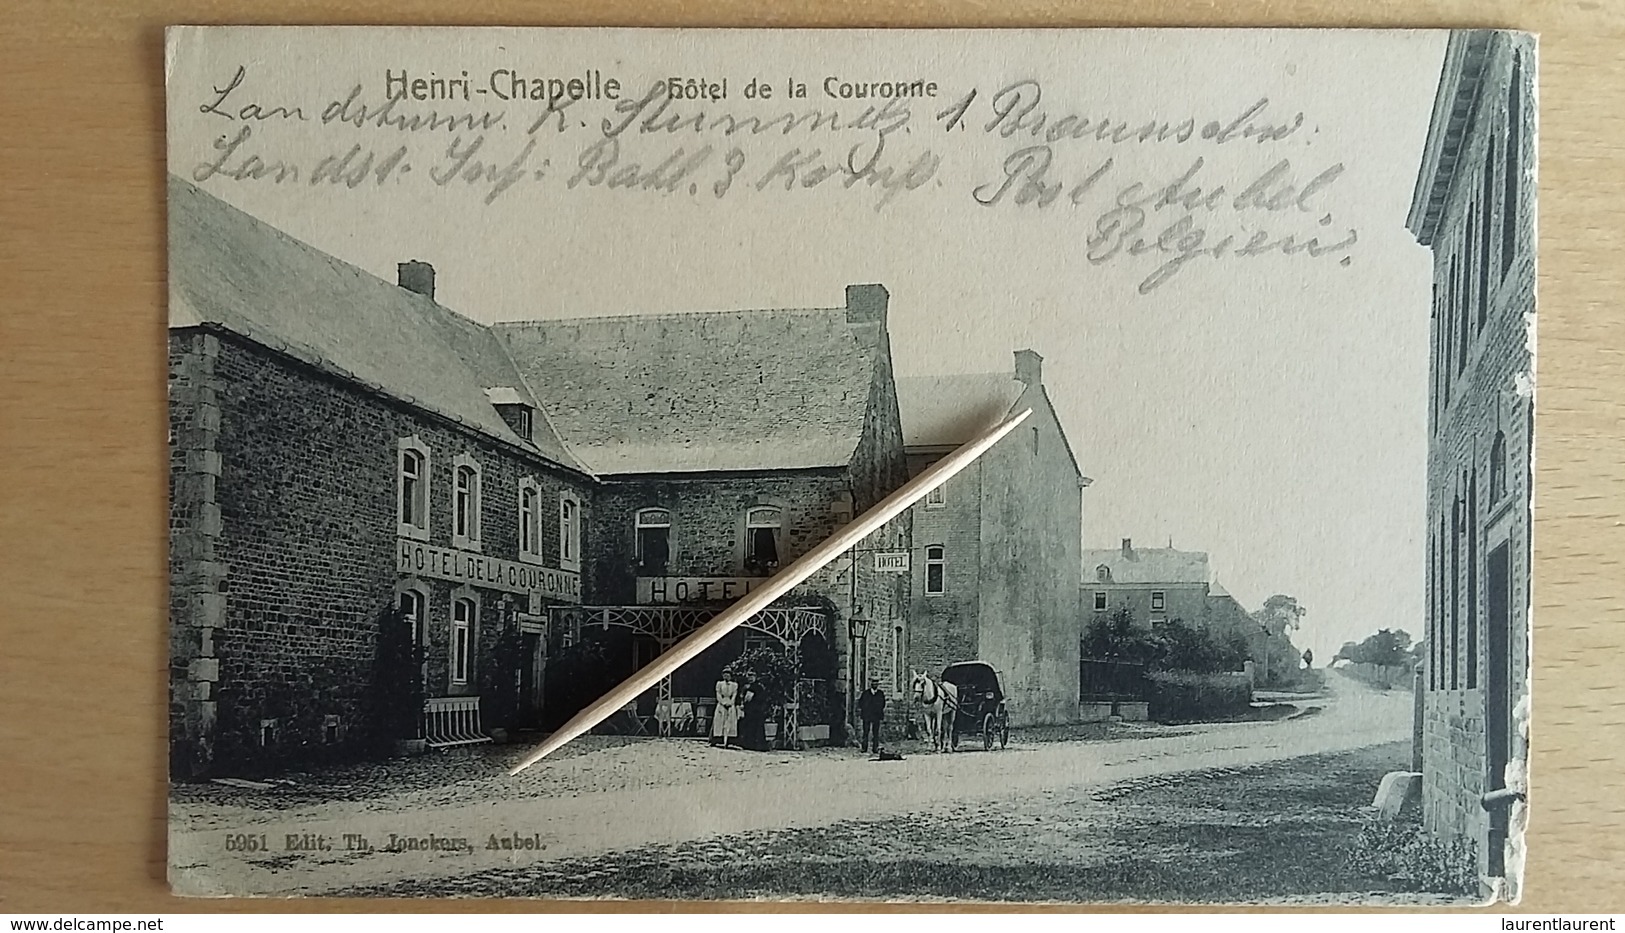 Henri-Chapelle Hôtel de la Couronne
Landsturm. K. 1. Braunschw:
Landst. Inf: Batl. 3 Komp. Post Aubel.
Belgien.
HÔTEL DE LA COURONNE
HÔTEL
HOTEL
5951 Edit. Th. Jonckers, Aubel.
delcampe.net
laurentlaurent